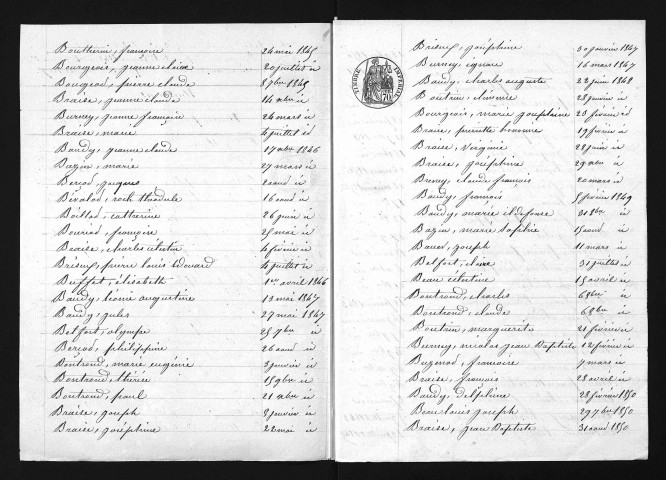 Boutherin, françoise 24 mai 1845
Bourgeois, jeanne claire 20 juillet id
Bougeod, pierre claude 8 9bre 1845
Braise, jeanne claude 14 xbre id
Burney, jeanne françoise 26 mars id
Braise, marie 4 juillet id
Baudy, jeanne claude 17 xbre 1846
Bazin, marie 27 mars id
Berçod, jacques 2 aoud id
Bévalod, roch théodule 16 aoud id
Boillod, catherine 26 juin id
Bouriod, françoise 25 mai id
Braise, charles célestin 4 février id
Brésus, pierre louis édouard 4 juillet id
Buffet, élisabeth 1er avril 1846
Baudy, léonie augustine 13 mai 1847
Baudy, jules 27 mai 1847
Belfort, olympe 25 7bre id
Berçod, philippine 26 aoud id
Boutrond, marie eugénie 3 janvier id
Bontrond, thérèse 15 9bre id
Boutrond, paul 21 xbre id
Braise, joseph 8 janvier id
Braise, joséphine 22 mai id
Brésus, joséphine 30 janvier 1847
Burney, ignace 16 mars 1847
Baudy, charles auguste 22 juin 1848
Boutrin, clémence 28 janvier id
Bourgeois, marie joséphine 23 février id
Braise, pierrette 19 février id
Braise, Virginie 28 juin id
Braise, joséphine 29 xbre id
Bresey, claude françois 20 mars id
Baudy, françois 5 février 1849
Baudy, marie ildefonse 21 8bre id
Bazin, marie Sophie 15 aoud id
Bauer, joseph 11 mars id
Belfort, claire 31 juillet id
Beau célestine 15 avril id
Boutrond, charles 6 8bre id
Boutrond, claude 6 8bre id
Boutrin, marguerite 21 février id
Burney, nicolas jean Baptiste 12 février id
Buzenod, françoise 7 mars id
Braise, françois 28 avril id
Baudy, Delphine 28 février 1850
Beau louis joseph 29 7bre 1850
Braise, jean Baptiste 31 aoud 1850
TIMBRE IMPERIAL